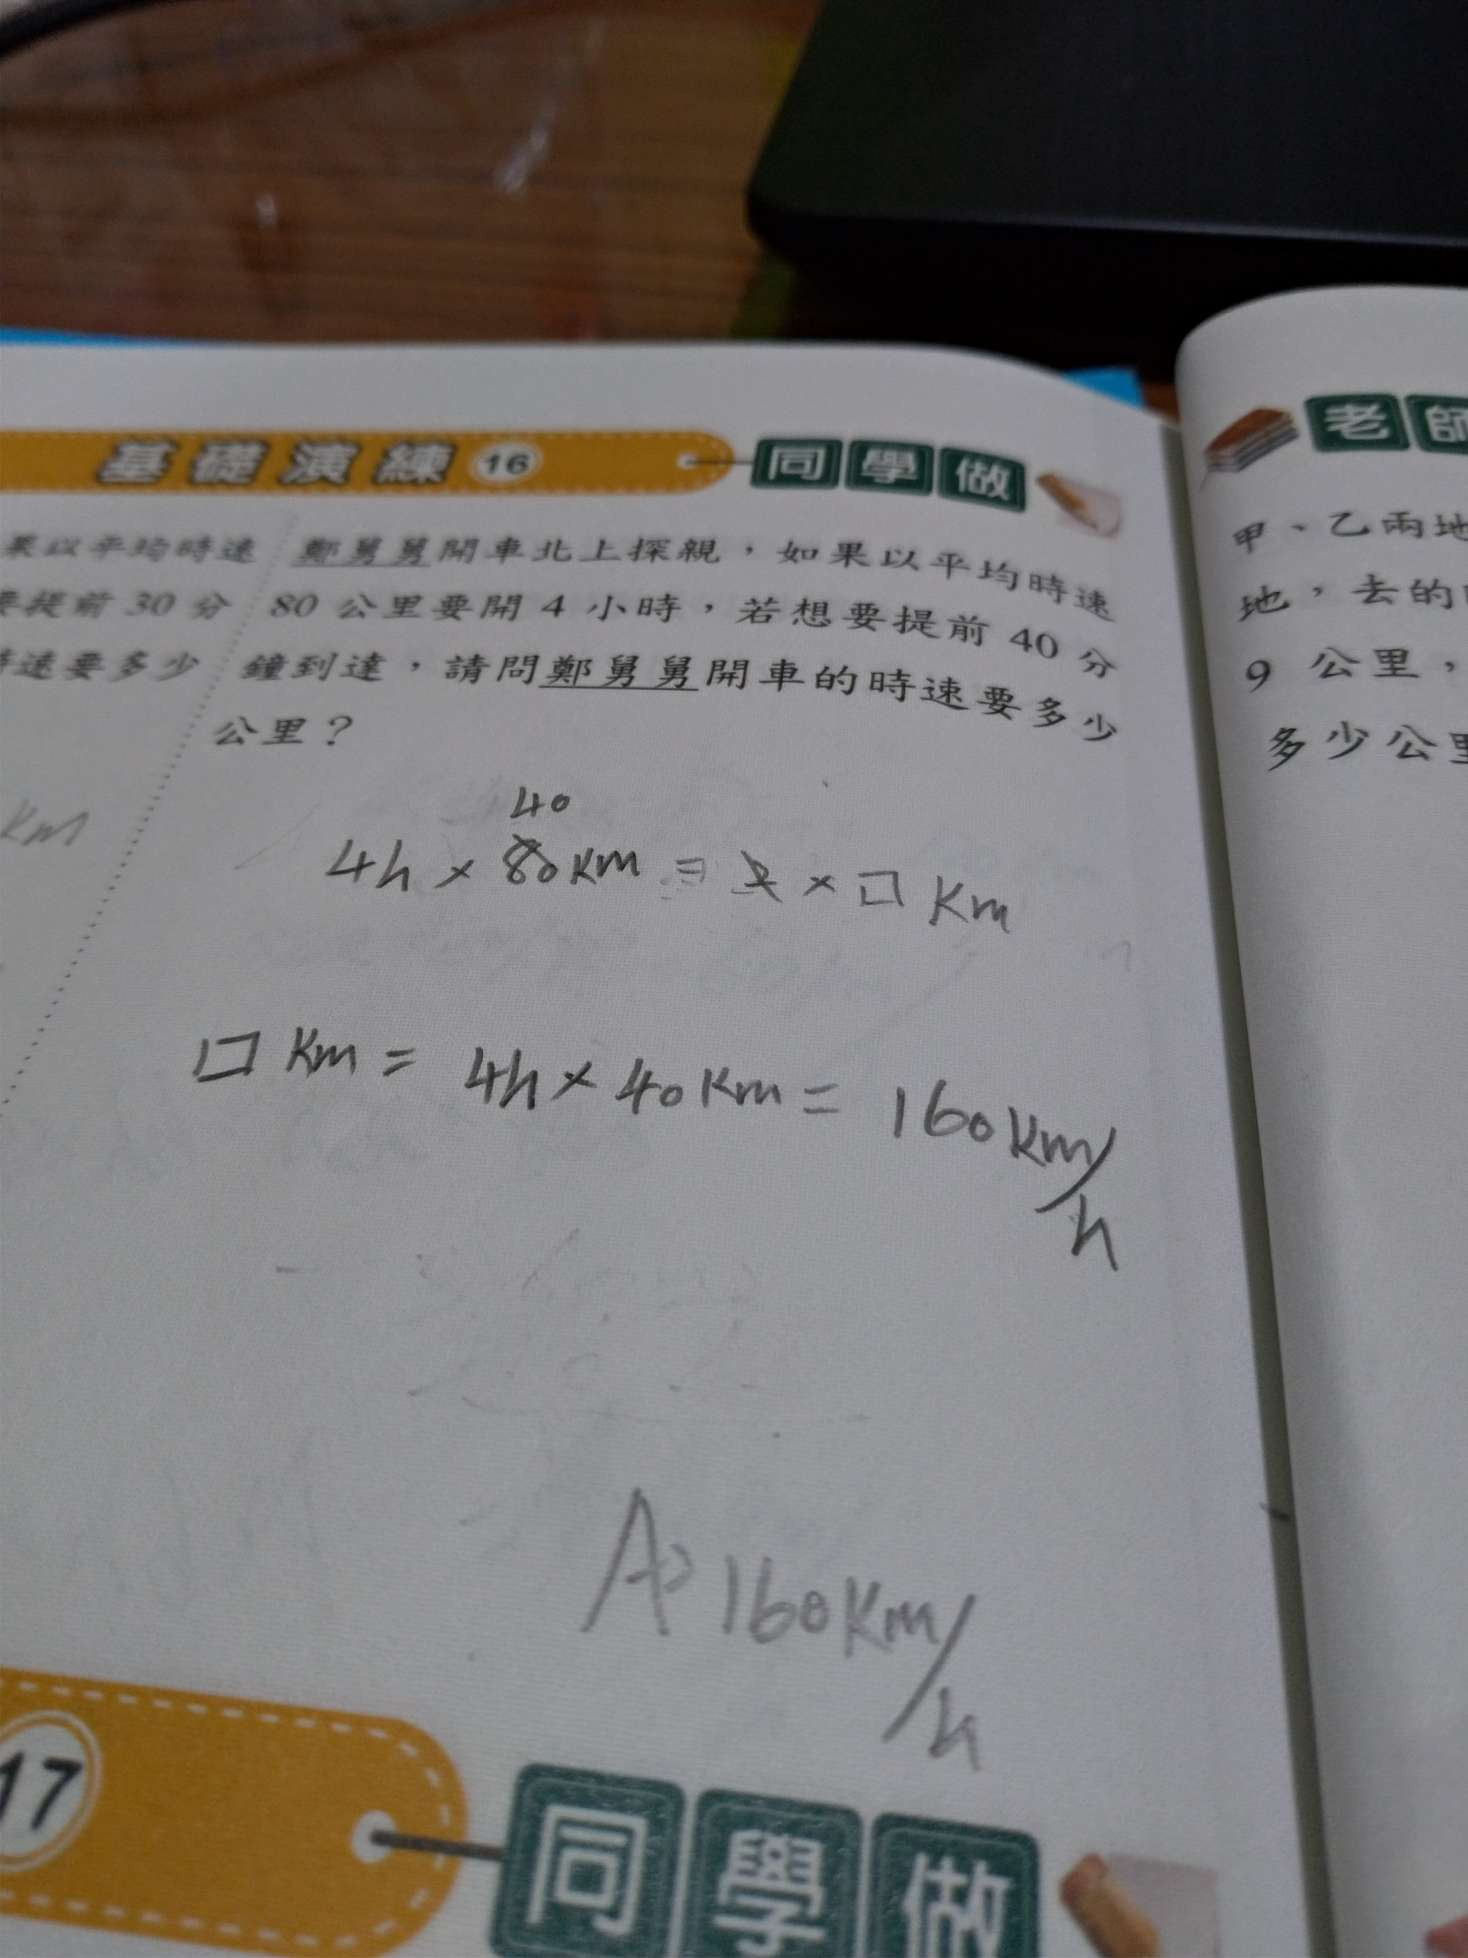 基礎演練 16 同學做
果以平均時速
要提前 30 分
時速要多少
鄭舅舅開車北上探親，如果以平均時速
80 公里要開 4 小時，若想要提前 40 分
鐘到達，請問鄭舅舅開車的時速要多少
公里？
km
40
4h × 80km = 2 × □ km
□ km = 4h × 40km = 160km/h
A: 160km/h
17 同學做
老師
甲、乙兩地
地，去的
9 公里，
多少公里